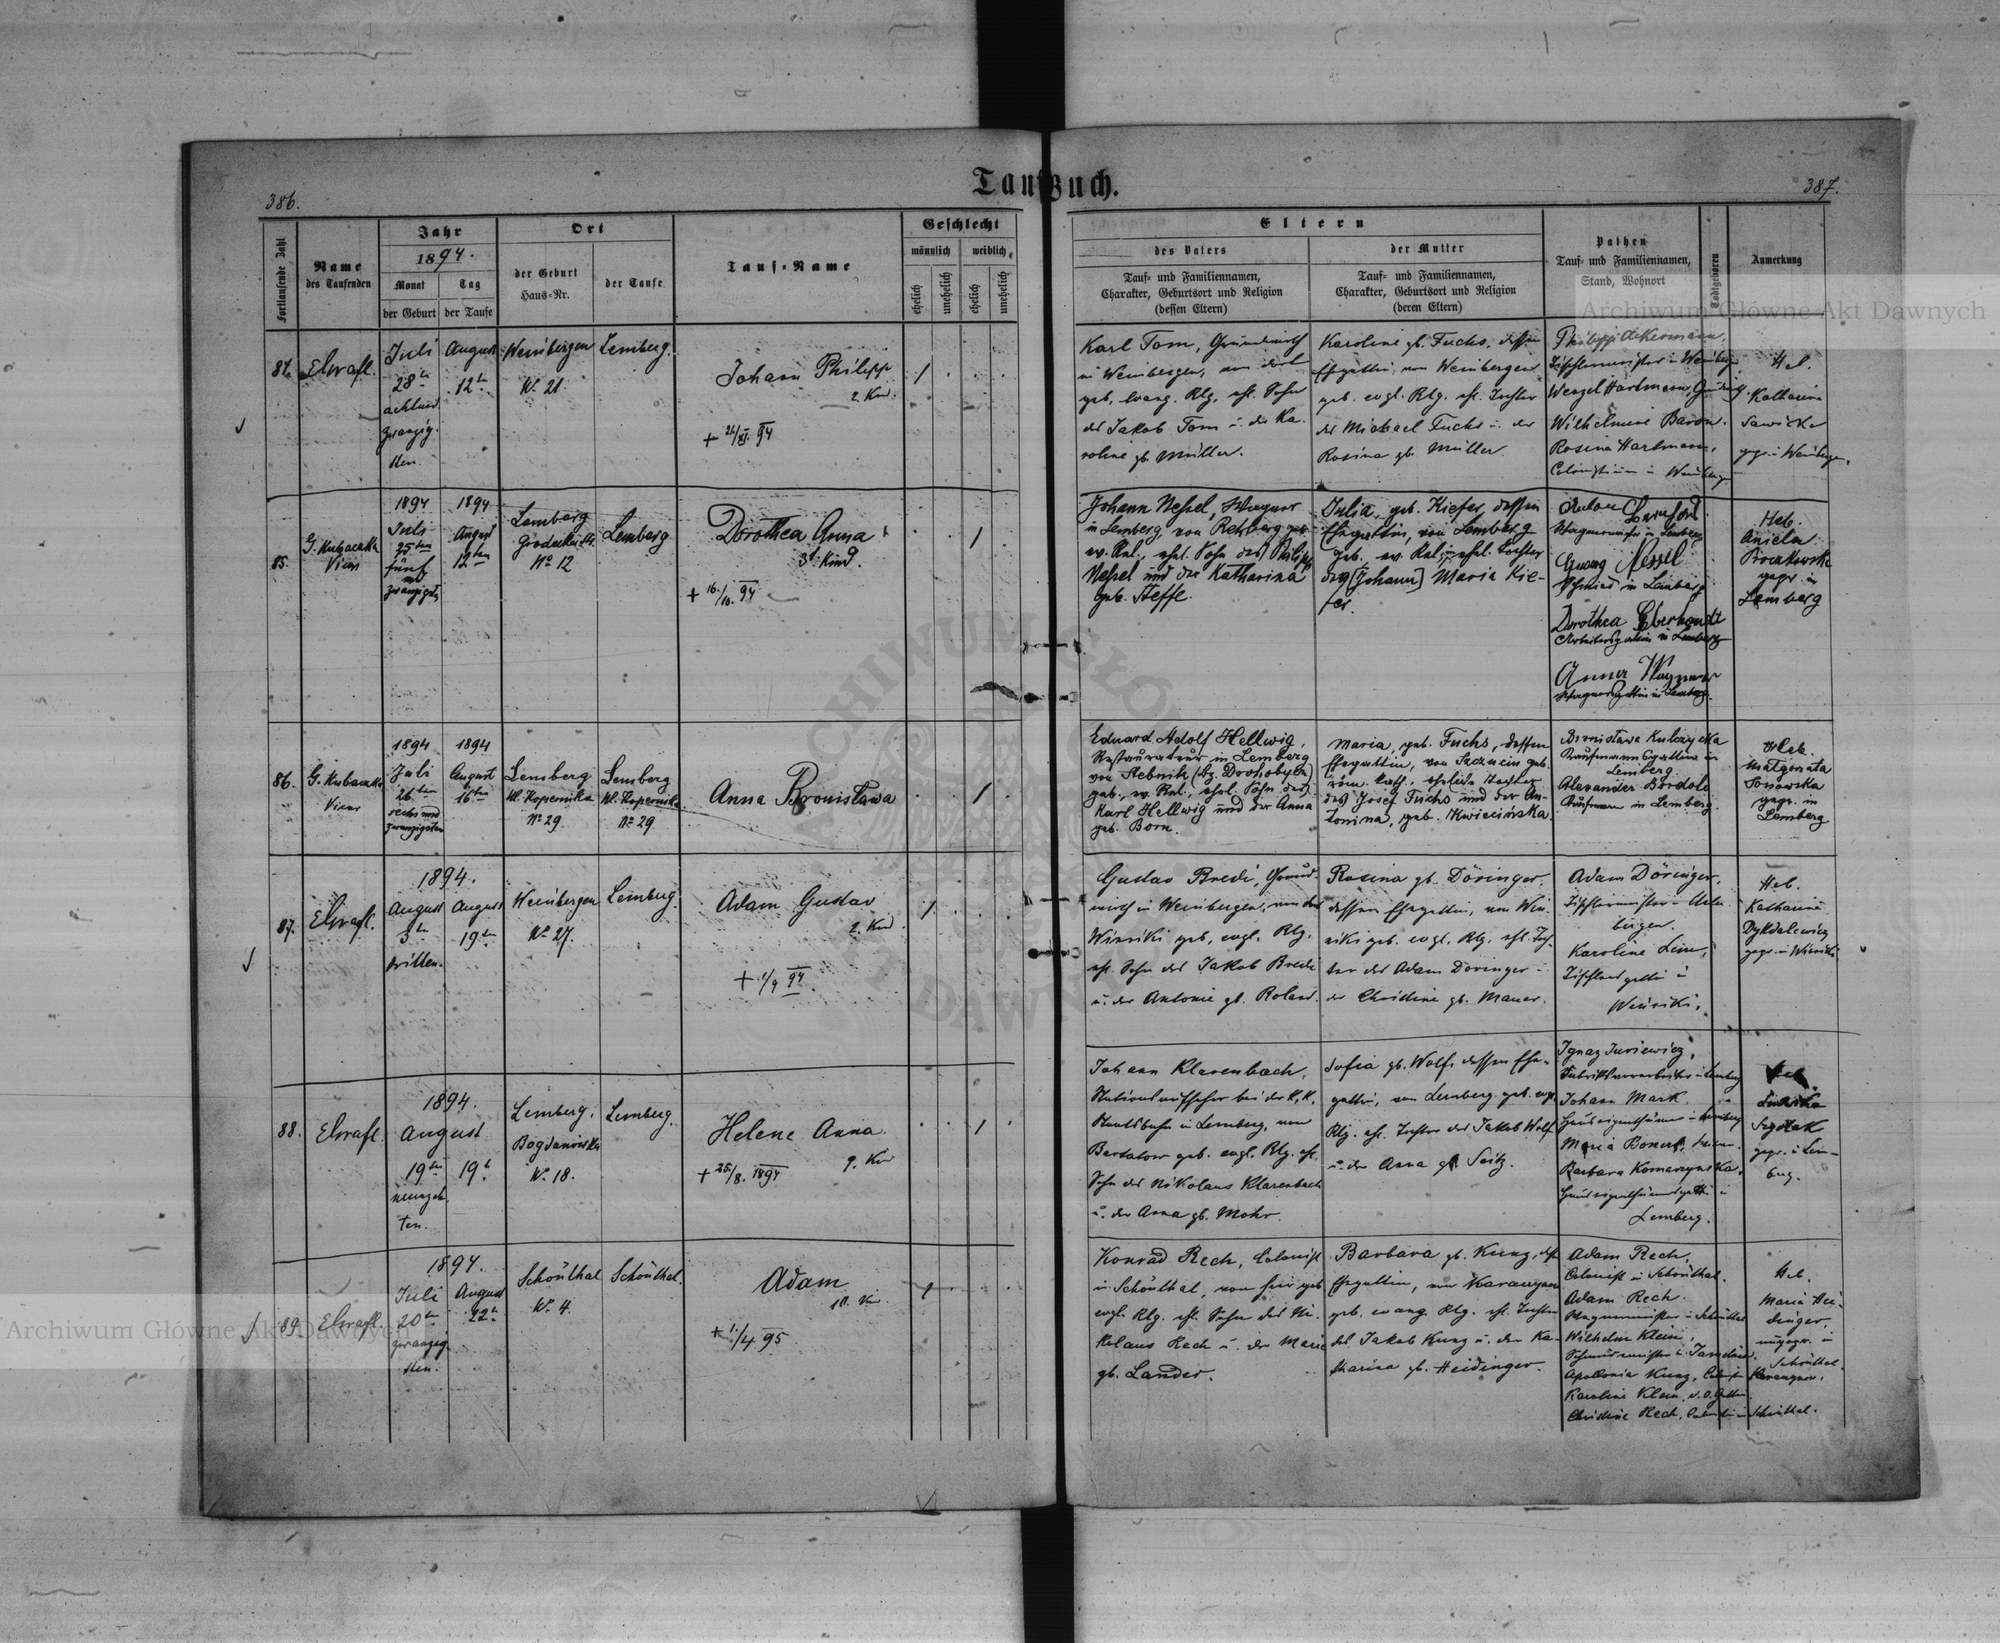 Taufbuch.
386.
387.
Fortlaufende Zahl
Name
des Taufenden
Jahr
1894.
Monat
der Geburt
Tag
der Taufe
Ort
der Geburt
Haus-Nr.
der Taufe
Tauf-Name
Geschlecht
männlich
weiblich
ehelich
unehelich
ehelich
unehelich
Eltern
des Vaters
Tauf- und Familiennamen,
Charakter, Geburtsort und Religion
(dessen Eltern)
der Mutter
Tauf- und Familiennamen,
Charakter, Geburtsort und Religion
(deren Eltern)
Pathen
Tauf- und Familiennamen,
Stand, Wohnort
Todtgeboren
Anmerkung
Archiwum Główne Akt Dawnych
84.
Juli
28
August
12
Weinbergen
№ 21
Lemberg.
Johann Philipp
2. Kind.
+ 21/XI. 94
1
Karl Tom,
in Weinbergen, von dort
geb. evang. Rlg. ehl. Sohn
des Jakob Tom u. der Ka-
roline gb. Müller.
Karoline gb. Fuchs, dessen
Ehegattin, von Weinbergen
geb. evgl. Rlg. ehl. Tochter
des Michael Fuchs u. der
Rosina gb. Müller.
Philipp Ackermann,
Tischlermeister in Weinbergen
Wenzel Hartmann,
Wilhelmine Baron.
Rosina Hartmann,
Heb.
Katharina
Sawicka
gepr. in Weinbergen.
85.
G. Kubaczka
Vicar
1894
Juli
25ten
fünf
und
zwanzigsten
1894
August
12ten
Lemberg
№ 12
Lemberg
Dorothea Anna
3t. Kind.
+ 16./10. 94
1
Johann Nessel, Wagner
in Lemberg von Rehberg geb.
ev. Rel., ehel. Sohn des Philipp
Nessel und der Katharina
geb. Steffe.
Julia, geb. Kiefer, dessen
Ehegattin, von Lemberg
geb. ev. Rel., ehel. Tochter
des [Johann] Maria Kie-
fer.
Georg Nessel
Schmied in Lemberg
Dorothea Eberhardt
Arbeitersgattin in Lemberg
Anna Wagner
Wagnersgattin in Lemberg.
Heb.
Aniela
gepr. in
Lemberg
86.
G. Kubaczka
Vicar
1894
Juli
26ten
sechs und
zwanzigsten
1894
August
16ten
Lemberg
Ul. Kopernika
№ 29.
Lemberg
Ul. Kopernika
№ 29
Anna Bronisława
1
Eduard Adolf Hellwig,
Restaurateur in Lemberg
von Stebnik (bz. Drohobycz)
geb., ev. Rel., ehel. Sohn des
Karl Hellwig und der Anna
geb. Born.
Maria, geb. Fuchs, dessen
Ehegattin, von Tarzein geb.
röm. kath. eheleib. Tochter
des Josef Fuchs und der An-
tonina, geb. Kwiecińska.
Bronislawa Kulczycka
Kaufmannsgattin in
Lemberg.
Alexander Bordoli
Kaufmann in Lemberg
Heb.
Małgorzata
Sosnowska
gepr. in
Lemberg
87.
1894.
August
3
dritten.
August
19
Weinbergen
№ 27.
Lemberg.
Adam Gustav
2. Kind.
+ 1/9 94.
1
Gustav Bredi, Grund-
wirth in Weinbergen, von
Winniki geb. evgl. Rlg.
ehl. Sohn des Jakob Bredi
u. der Antonie gb. Roland.
Rosina gb. Döringer.
dessen Ehegattin, von Win-
niki geb. evgl. Rlg. ehl. Toch-
ter des Adam Döringer u.
der Christine gb. Mauer.
Adam Döringer,
Tischlermeister in Wein-
bergen.
Karoline Lim,
Tischlersgattin in
Winniki.
Heb.
Katharina
Dykdalewicz
gepr. in Winniki
88.
1894.
August
19
neunzehn-
ten.
19
Lemberg.
Bogdanówka
№ 18.
Lemberg.
Helene Anna.
9. Kind
+ 25/8. 1894
1
Johann Klarenbach,
Stationsaufseher bei der K. K.
Staatsbahn in Lemberg, von
Bartatow geb. evgl. Rlg. ehl.
Sohn des Nikolaus Klarenbach
u. der Anna gb. Mohr.
Sofia gb. Wolf, dessen Ehe-
gattin, von Lemberg geb. evgl.
Rlg. ehl. Tochter des Jakob Wolf
u. der Anna gb. Seitz.
Ignaz Juriewicz,
Johann Mark.
Barbara Komarzynska,
Lemberg.
gepr. in Lem-
berg.
89.
1894.
Juli
20
zwanzig-
sten.
August
22
Schönthal
№ 4.
Schönthal.
Adam
10. Kind
+ 1./4. 95.
1
Konrad Rech, Colonist
in Schönthal, von hier geb.
evgl. Rlg. ehl. Sohn des Ni-
kolaus Rech u. der Marie
gb. Lander.
Barbara gb. Kunz, dess.
Ehegattin, von
geb. evang. Rlg. ehl. Tochter
des Jakob Kunz u. der Ka-
tharina gb. Heidinger.
Adam Rech,
Colonist in Schönthal.
Adam Rech.
Wagnermeister in Schönthal
Wilhelm Klein,
Apollonia Kunz,
Karoline Klein,
Christine Rech, Schönthal.
Heb.
Maria Hei-
dinger,
ungepr. in
Schönthal.
Archiwum Główne Akt Dawnych